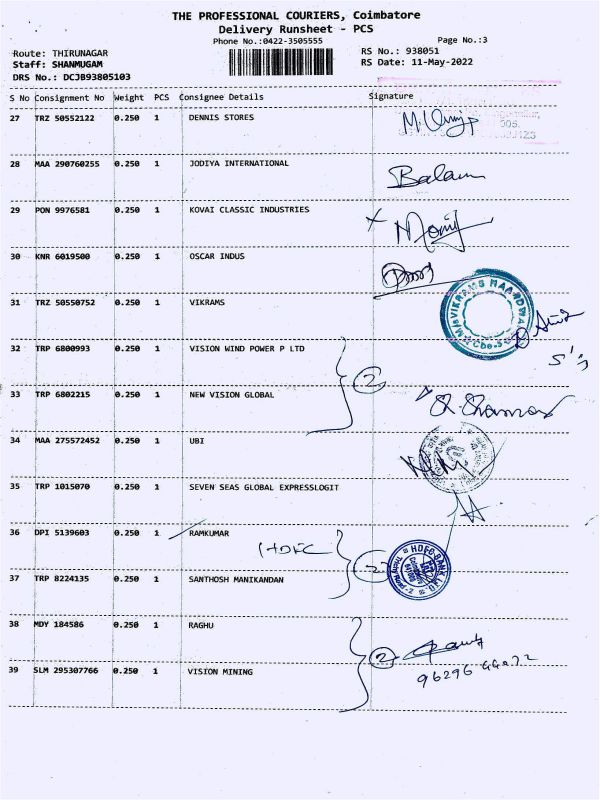 THE PROFESSIONAL COURIERS, Coimbatore
Delivery Runsheet - PCS
Phone No.:0422-3505555
Page No.:3
Route: THIRUNAGAR
RS No.: 938051
Staff: SHANMUGAM
RS Date: 11-May-2022
DRS No.: DCJB93805103
S No Consignment No Weight PCS Consignee Details Signature
27 TRZ 50552122 0.250 1 DENNIS STORES
28 MAA 290760255 0.250 1 JODIYA INTERNATIONAL
Balam
29 PON 9976581 0.250 1 KOVAI CLASSIC INDUSTRIES
30 KNR 6019500 0.250 1 OSCAR INDUS
31 TRZ 50550752 0.250 1 VIKRAMS
32 TRP 6800993 0.250 1 VISION WIND POWER P LTD
2
33 TRP 6802215 0.250 1 NEW VISION GLOBAL
34 MAA 275572452 0.250 1 UBI
35 TRP 1015070 0.250 1 SEVEN SEAS GLOBAL EXPRESSLOGIT
36 DPI 5139603 0.250 1 RAMKUMAR
HDFC
2
HDFC BANK LTD
37 TRP 8224135 0.250 1 SANTHOSH MANIKANDAN
38 MDY 184586 0.250 1 RAGHU
2
39 SLM 295307766 0.250 1 VISION MINING